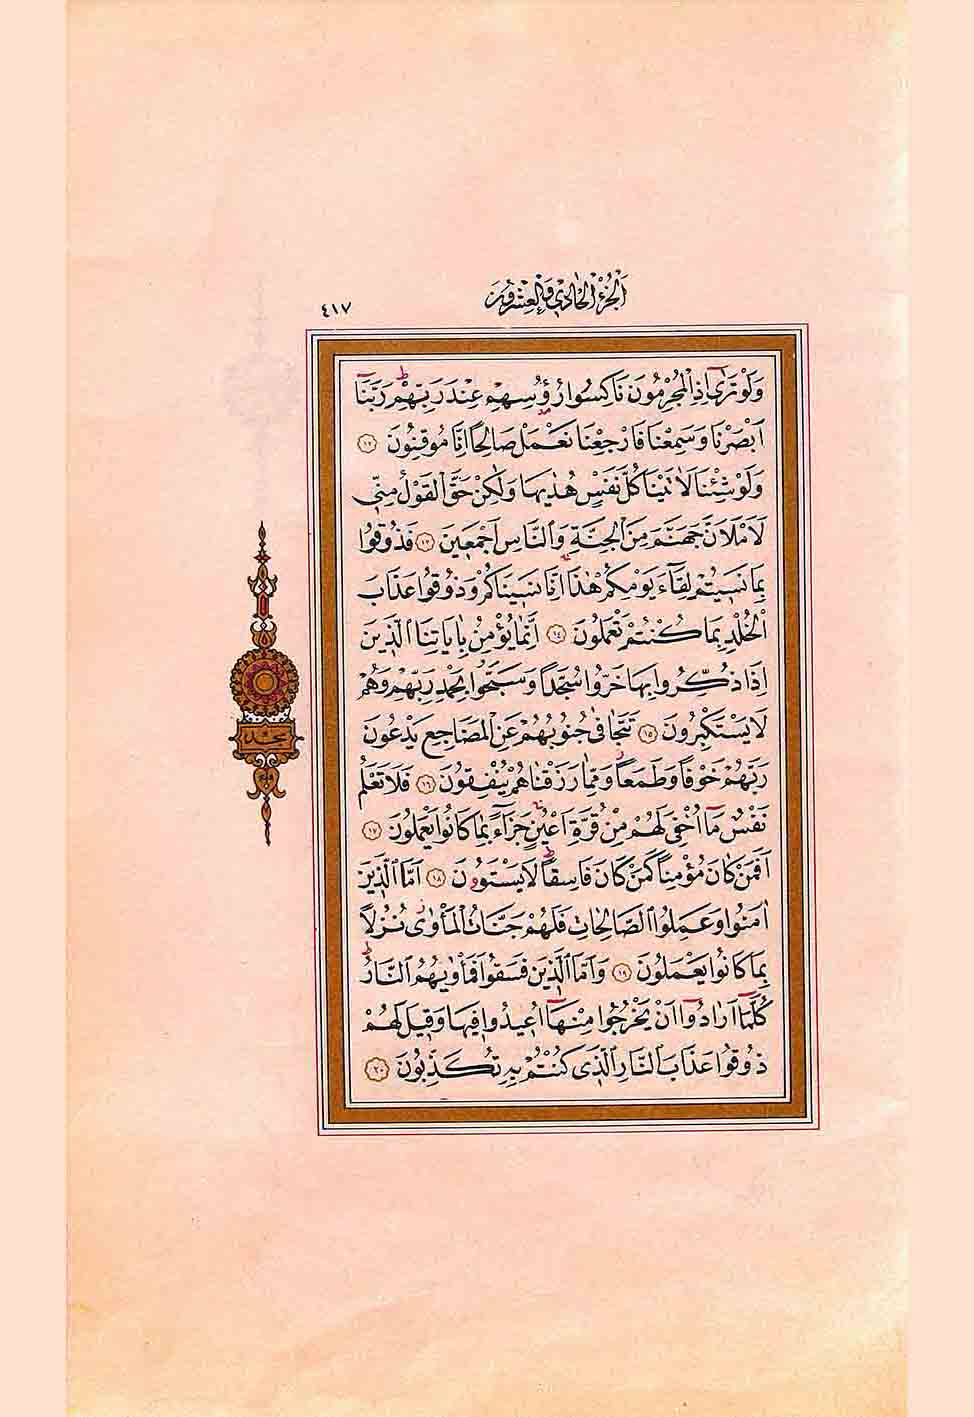 اَلْجُزْءُ الْحَادِي وَالْعِشْرُونَ
٤١٧
وَلَوْ تَرٰٓى اِذِ الْمُجْرِمُونَ نَاكِسُوا رُؤُسِهِمْ عِنْدَ رَبِّهِمْۜ رَبَّنَٓا
اَبْصَرْنَا وَسَمِعْنَا فَارْجِعْنَا نَعْمَلْ صَالِحًا اِنَّا مُوقِنُونَ ﴿١٢﴾
وَلَوْ شِئْنَا لَاٰتَيْنَا كُلَّ نَفْسٍ هُدٰيهَا وَلٰكِنْ حَقَّ الْقَوْلُ مِنّ۪ي
لَاَمْلَـَٔنَّ جَهَنَّمَ مِنَ الْجِنَّةِ وَالنَّاسِ اَجْمَع۪ينَ ﴿١٣﴾ فَذُوقُوا
بِمَا نَس۪يتُمْ لِقَٓاءَ يَوْمِكُمْ هٰذَاۚ اِنَّا نَس۪ينَاكُمْ وَذُوقُوا عَذَابَ
الْخُلْدِ بِمَا كُنْتُمْ تَعْمَلُونَ ﴿١٤﴾ اِنَّمَا يُؤْمِنُ بِاٰيَاتِنَا الَّذ۪ينَ
اِذَا ذُكِّرُوا بِهَا خَرُّوا سُجَّدًا وَسَبَّحُوا بِحَمْدِ رَبِّهِمْ وَهُمْ
لَا يَسْتَكْبِرُونَ ﴿١٥﴾ تَتَجَافٰى جُنُوبُهُمْ عَنِ الْمَضَاجِعِ يَدْعُونَ
رَبَّهُمْ خَوْفًا وَطَمَعًاۘ وَمِمَّا رَزَقْنَاهُمْ يُنْفِقُونَ ﴿١٦﴾ فَلَا تَعْلَمُ
نَفْسٌ مَٓا اُخْفِيَ لَهُمْ مِنْ قُرَّةِ اَعْيُنٍۚ جَزَٓاءً بِمَا كَانُوا يَعْمَلُونَ ﴿١٧﴾
اَفَمَنْ كَانَ مُؤْمِنًا كَمَنْ كَانَ فَاسِقًاۜ لَا يَسْتَوُ۫نَ ﴿١٨﴾ اَمَّا الَّذ۪ينَ
اٰمَنُوا وَعَمِلُوا الصَّالِحَاتِ فَلَهُمْ جَنَّاتُ الْمَأْوٰىۘ نُزُلًا
بِمَا كَانُوا يَعْمَلُونَ ﴿١٩﴾ وَاَمَّا الَّذ۪ينَ فَسَقُوا فَمَأْوٰيهُمُ النَّارُۜ
كُلَّمَٓا اَرَادُٓوا اَنْ يَخْرُجُوا مِنْهَٓا اُع۪يدُوا ف۪يهَا وَق۪يلَ لَهُمْ
ذُوقُوا عَذَابَ النَّارِ الَّذ۪ي كُنْتُمْ بِه۪ تُكَذِّبُونَ ﴿٢٠﴾
سجده